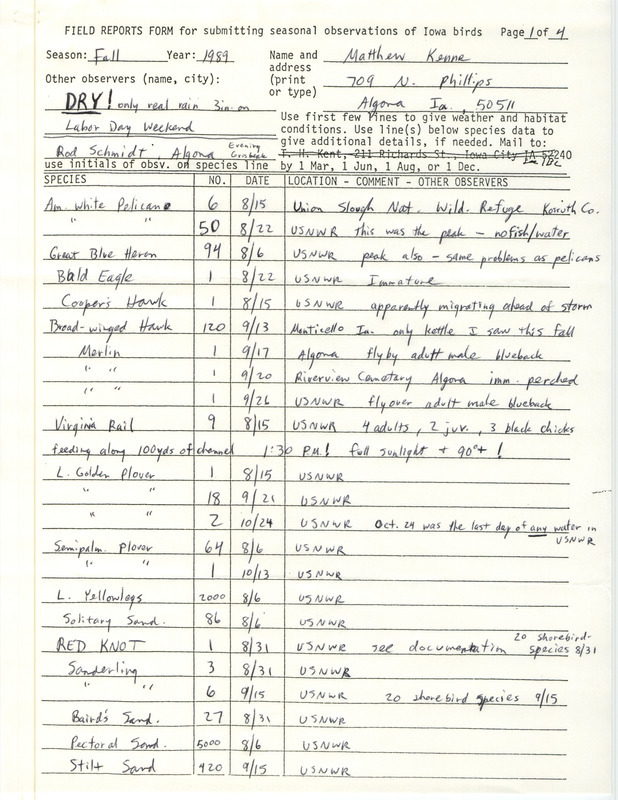 FIELD REPORTS FORM for submitting seasonal observations of Iowa birds Page 1 of 4
Season: Fall Year: 1989 Name and address (print or type) Matthew Kenne
709 N. Phillips
Algona Ia., 50511
Other observers (name, city):
DRY! only real rain 3in. on
Labor Day Weekend
Rod Schmidt Algona Evening Grosbeak
use initials of obsv. on species line
Use first few lines to give weather and habitat
conditions. Use line(s) below species data to
give additional details, if needed. Mail to:
T. H. Kent, 211 Richards St., Iowa City IA 52240
by 1 Mar, 1 Jun, 1 Aug, or 1 Dec.
SPECIES NO. DATE LOCATION - COMMENT - OTHER OBSERVERS
Am. White Pelican 6 8/15 Union Slough Nat. Wild. Refuge Kossuth Co.
" " 50 8/22 USNWR this was the peak - no fish/water
Great Blue Heron 94 8/6 USNWR peak also - same problems as pelicans
Bald Eagle 1 8/22 USNWR Immature
Cooper's Hawk 1 8/15 USNWR apparently migrating ahead of storm
Broad-winged Hawk 120 9/13 Monticello Ia. only kettle I saw this fall
Merlin 1 9/17 Algona flyby adult male blueback
" " 1 9/20 Riverview Cemetary Algona imm. perched
" " 1 9/26 USNWR flyover adult male blueback
Virginia Rail 9 8/15 USNWR 4 adults, 2 juv., 3 black chicks
feeding along 100yds of channel 1:30 P.M.! full sunlight + 90°+ !
L. Golden Plover 1 8/15 USNWR
" " 18 9/21 USNWR
" " 2 10/24 USNWR Oct. 24 was the last day of any water in
USNWR
Semipalm. Plover 64 8/6 USNWR
" " 1 10/13 USNWR
L. Yellowlegs 2000 8/6 USNWR
Solitary Sand. 86 8/6 USNWR
RED KNOT 1 8/31 USNWR see documentation 20 shorebird-
species 8/31
Sanderling 3 8/31 USNWR
" " 6 9/15 USNWR 20 shorebird species 9/15
Baird's Sand. 27 8/31 USNWR
Pectoral Sand. 5000 8/6 USNWR
Stilt Sand 420 9/15 USNWR